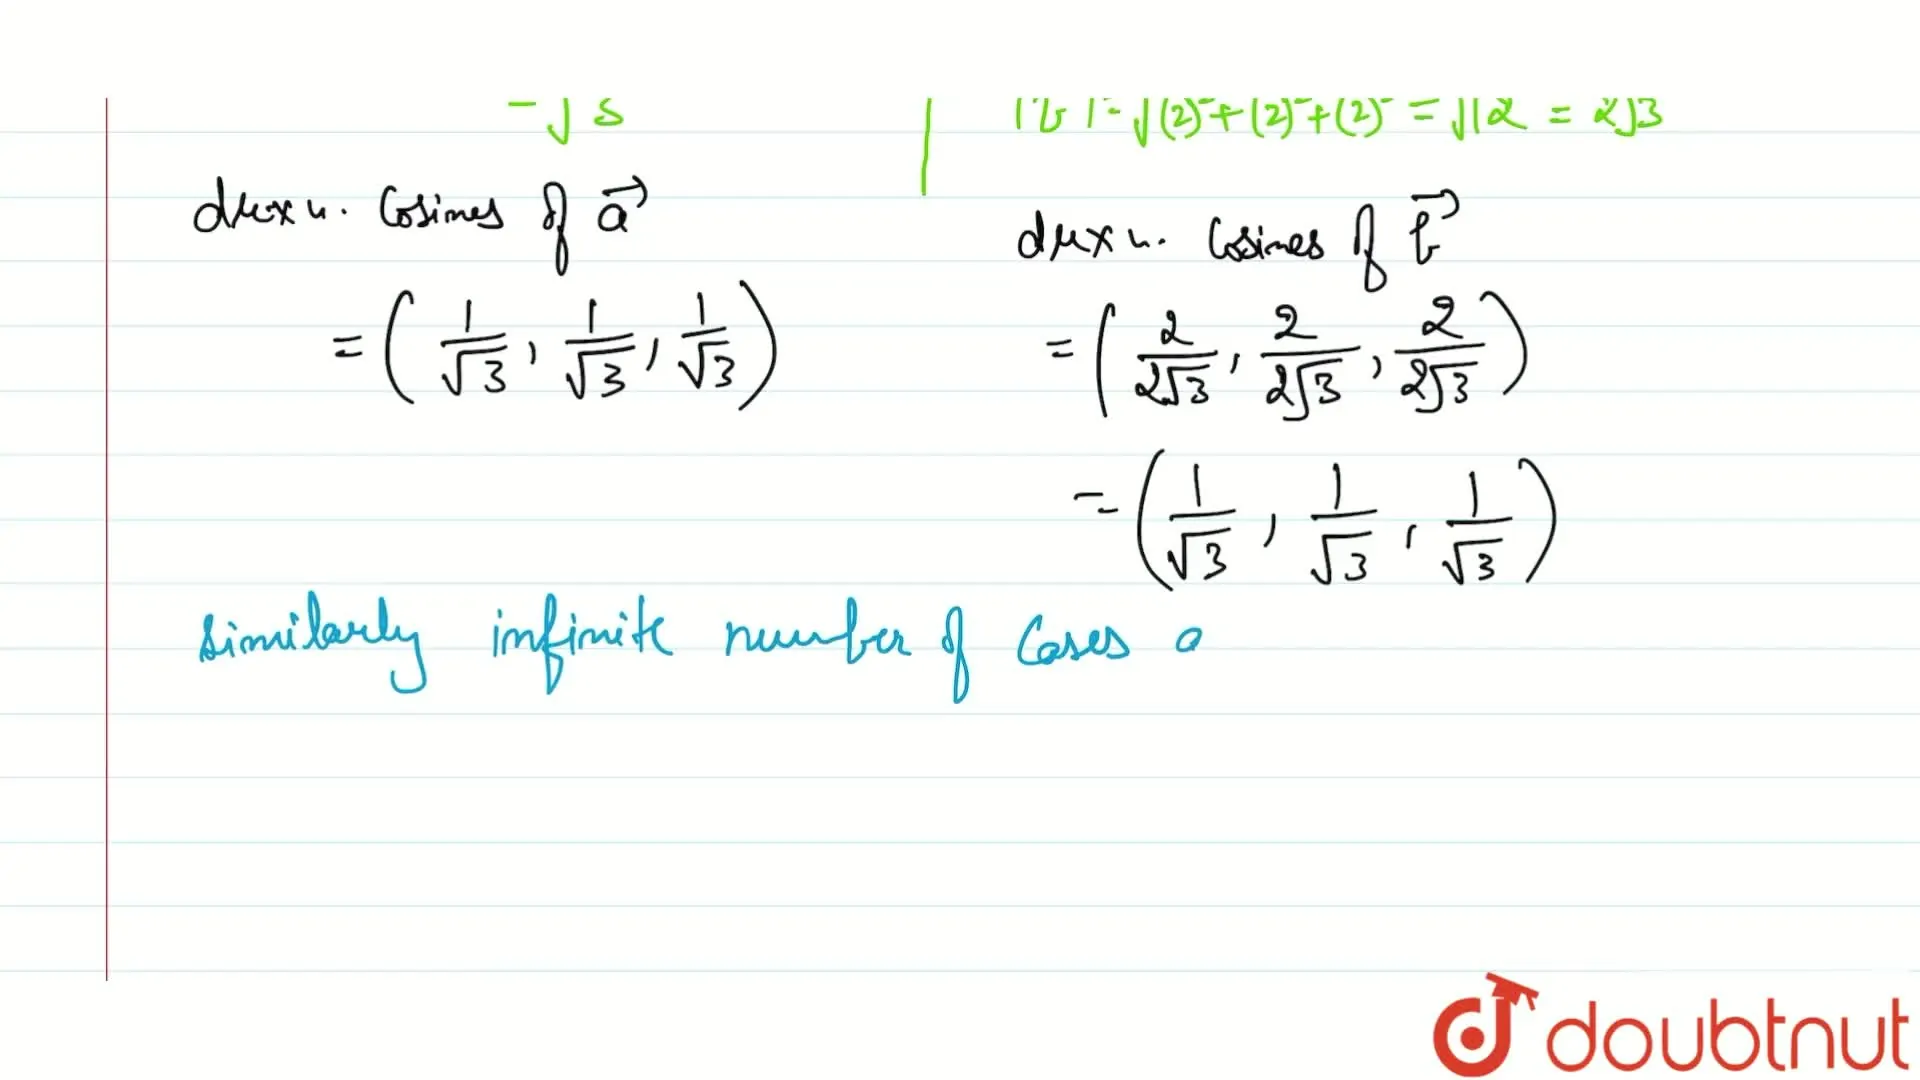 = √3
|b⃗| = √(2)²+(2)²+(2)² = √12 = 2√3
Cosines of a⃗
= (1/√3, 1/√3, 1/√3)
Cosines of b⃗
= (2/2√3, 2/2√3, 2/2√3)
= (1/√3, 1/√3, 1/√3)
similarly infinite number of cases a
doubtnut